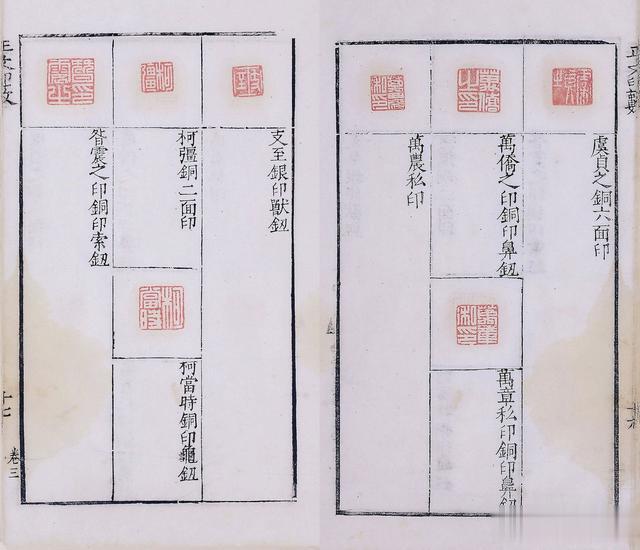 虞貞之銅六面印
萬僑之印銅印鼻鈕
萬章私印銅印鼻鈕
萬農私印
支至銀印獸鈕
柯彊銅二面印
柯當時銅印龜鈕
昝震之印銅印索鈕
十七
卷三